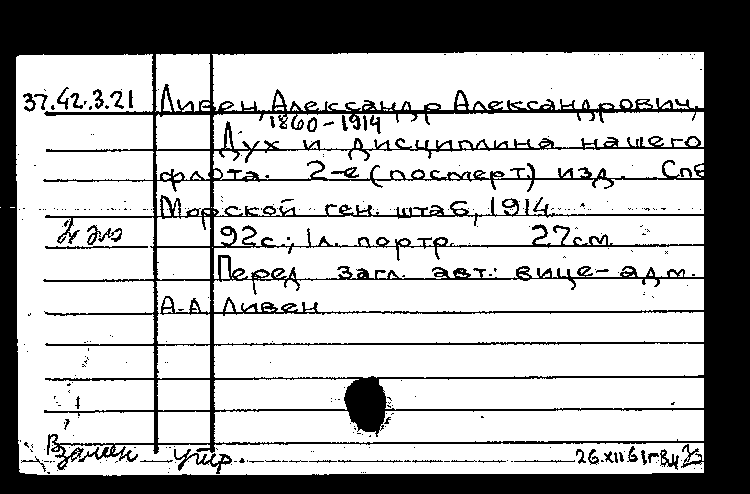 37.42.3.21 Ливен, Александр Александрович,
1860-1914
Дух и дисциплина нашего
флота. 2-е (посмерт.) изд. Спб
Морской ген. штаб, 1914.
2 экз 92с.; 1л. портр. 27см.
Перед загл. авт.: вице-адм.
А.А. Ливен
Взамен утр. 26.XII 61г